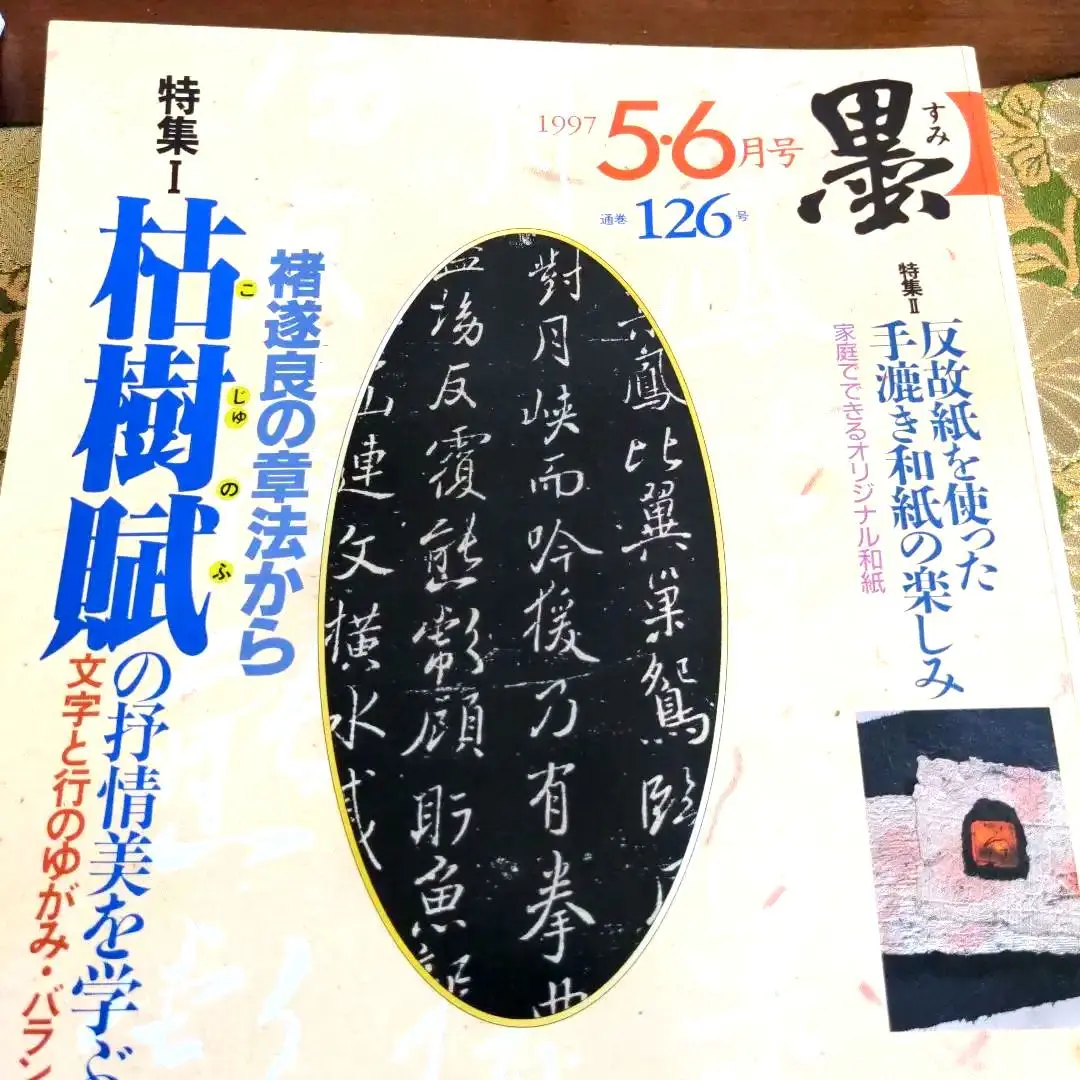 墨
すみ
1997 5・6月号
通巻 126 号
特集Ⅱ
反故紙を使った
手漉き和紙の楽しみ
家庭でできるオリジナル和紙
特集Ⅰ
褚遂良の章法から
枯樹賦の抒情美を学ぶ
こ じゅ の ふ
文字と行のゆがみ・バラン
鳳比翼巣鴛臨
對月峡而吟猨乃有拳曲
反覆熊彪顧盻魚
山連文横水蔵